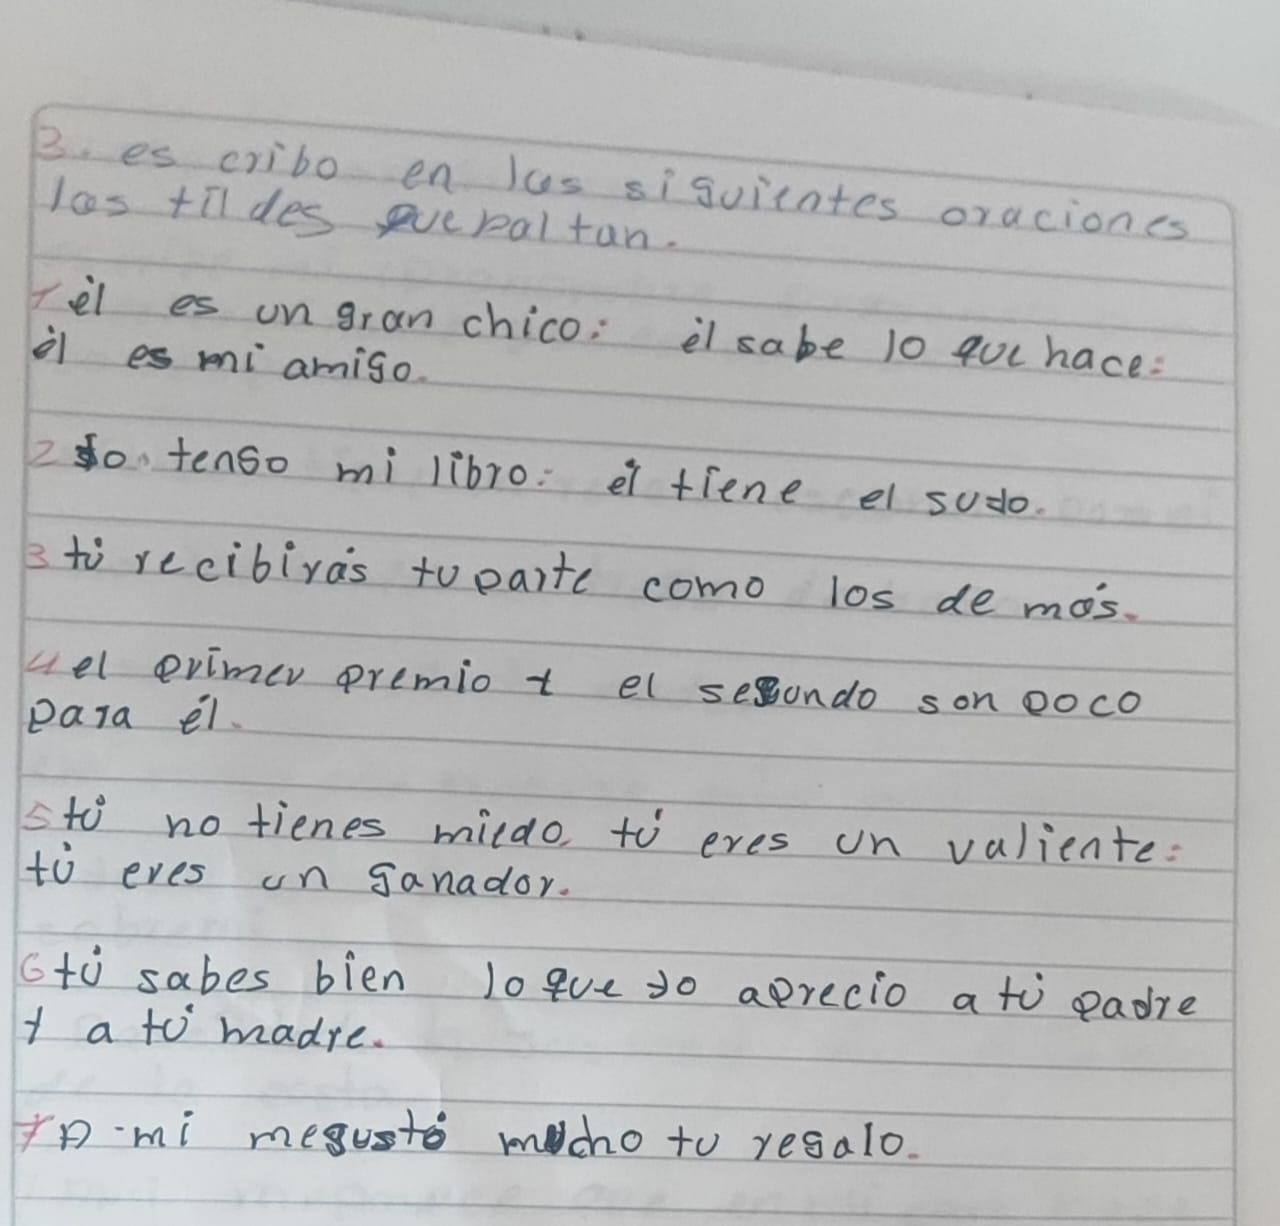 3. es cribo en las siguientes oraciones
las tildes que faltan.
1 él es un gran chico: él sabe lo que hace:
él es mi amigo.
2 yo tengo mi libro: él tiene el suyo.
3 tú recibirás tu parte como los de más.
4 el primer premio y el segundo son poco
para él.
5 tú no tienes miedo, tú eres un valiente:
tú eres un ganador.
6 tú sabes bien lo que yo aprecio a tú padre
y a tú madre.
7 A mi megustó mucho tu regalo.